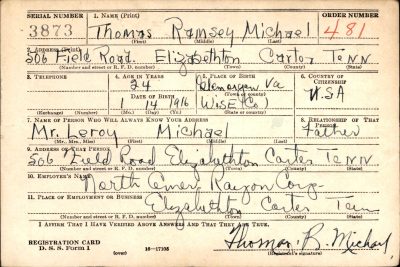 SERIAL NUMBER 1. NAME (Print) ORDER NUMBER
3873 Thomas Ramsey Michael 481
(First) (Middle) (Last)
2. ADDRESS (Print)
506 Field Road. Elizabethton Carter Tenn
(Number and street or R. F. D. number) (Town) (County) (State)
3. TELEPHONE 4. AGE IN YEARS 5. PLACE OF BIRTH 6. COUNTRY OF CITIZENSHIP
24 Va
DATE OF BIRTH (Town or county)
1 14 1916 Wise (Co) U.S.A
(Exchange) (Number) (Mo.) (Day) (Yr.) (State or country)
7. NAME OF PERSON WHO WILL ALWAYS KNOW YOUR ADDRESS 8. RELATIONSHIP OF THAT PERSON
Mr. Leroy Michael Father
(Mr., Mrs., Miss) (First) (Middle) (Last)
9. ADDRESS OF THAT PERSON
506 Field Road Elizabethton Carter Tenn
(Number and street or R. F. D. number) (Town) (County) (State)
10. EMPLOYER'S NAME
North Amer. Rayon Corp.
11. PLACE OF EMPLOYMENT OR BUSINESS
Elizabethton Carter Tenn
(Number and street or R. F. D. number) (Town) (County) (State)
I AFFIRM THAT I HAVE VERIFIED ABOVE ANSWERS AND THAT THEY ARE TRUE.
REGISTRATION CARD Thomas R. Michael
D. S. S. Form 1 (over) 16—17105 (Registrant's signature)